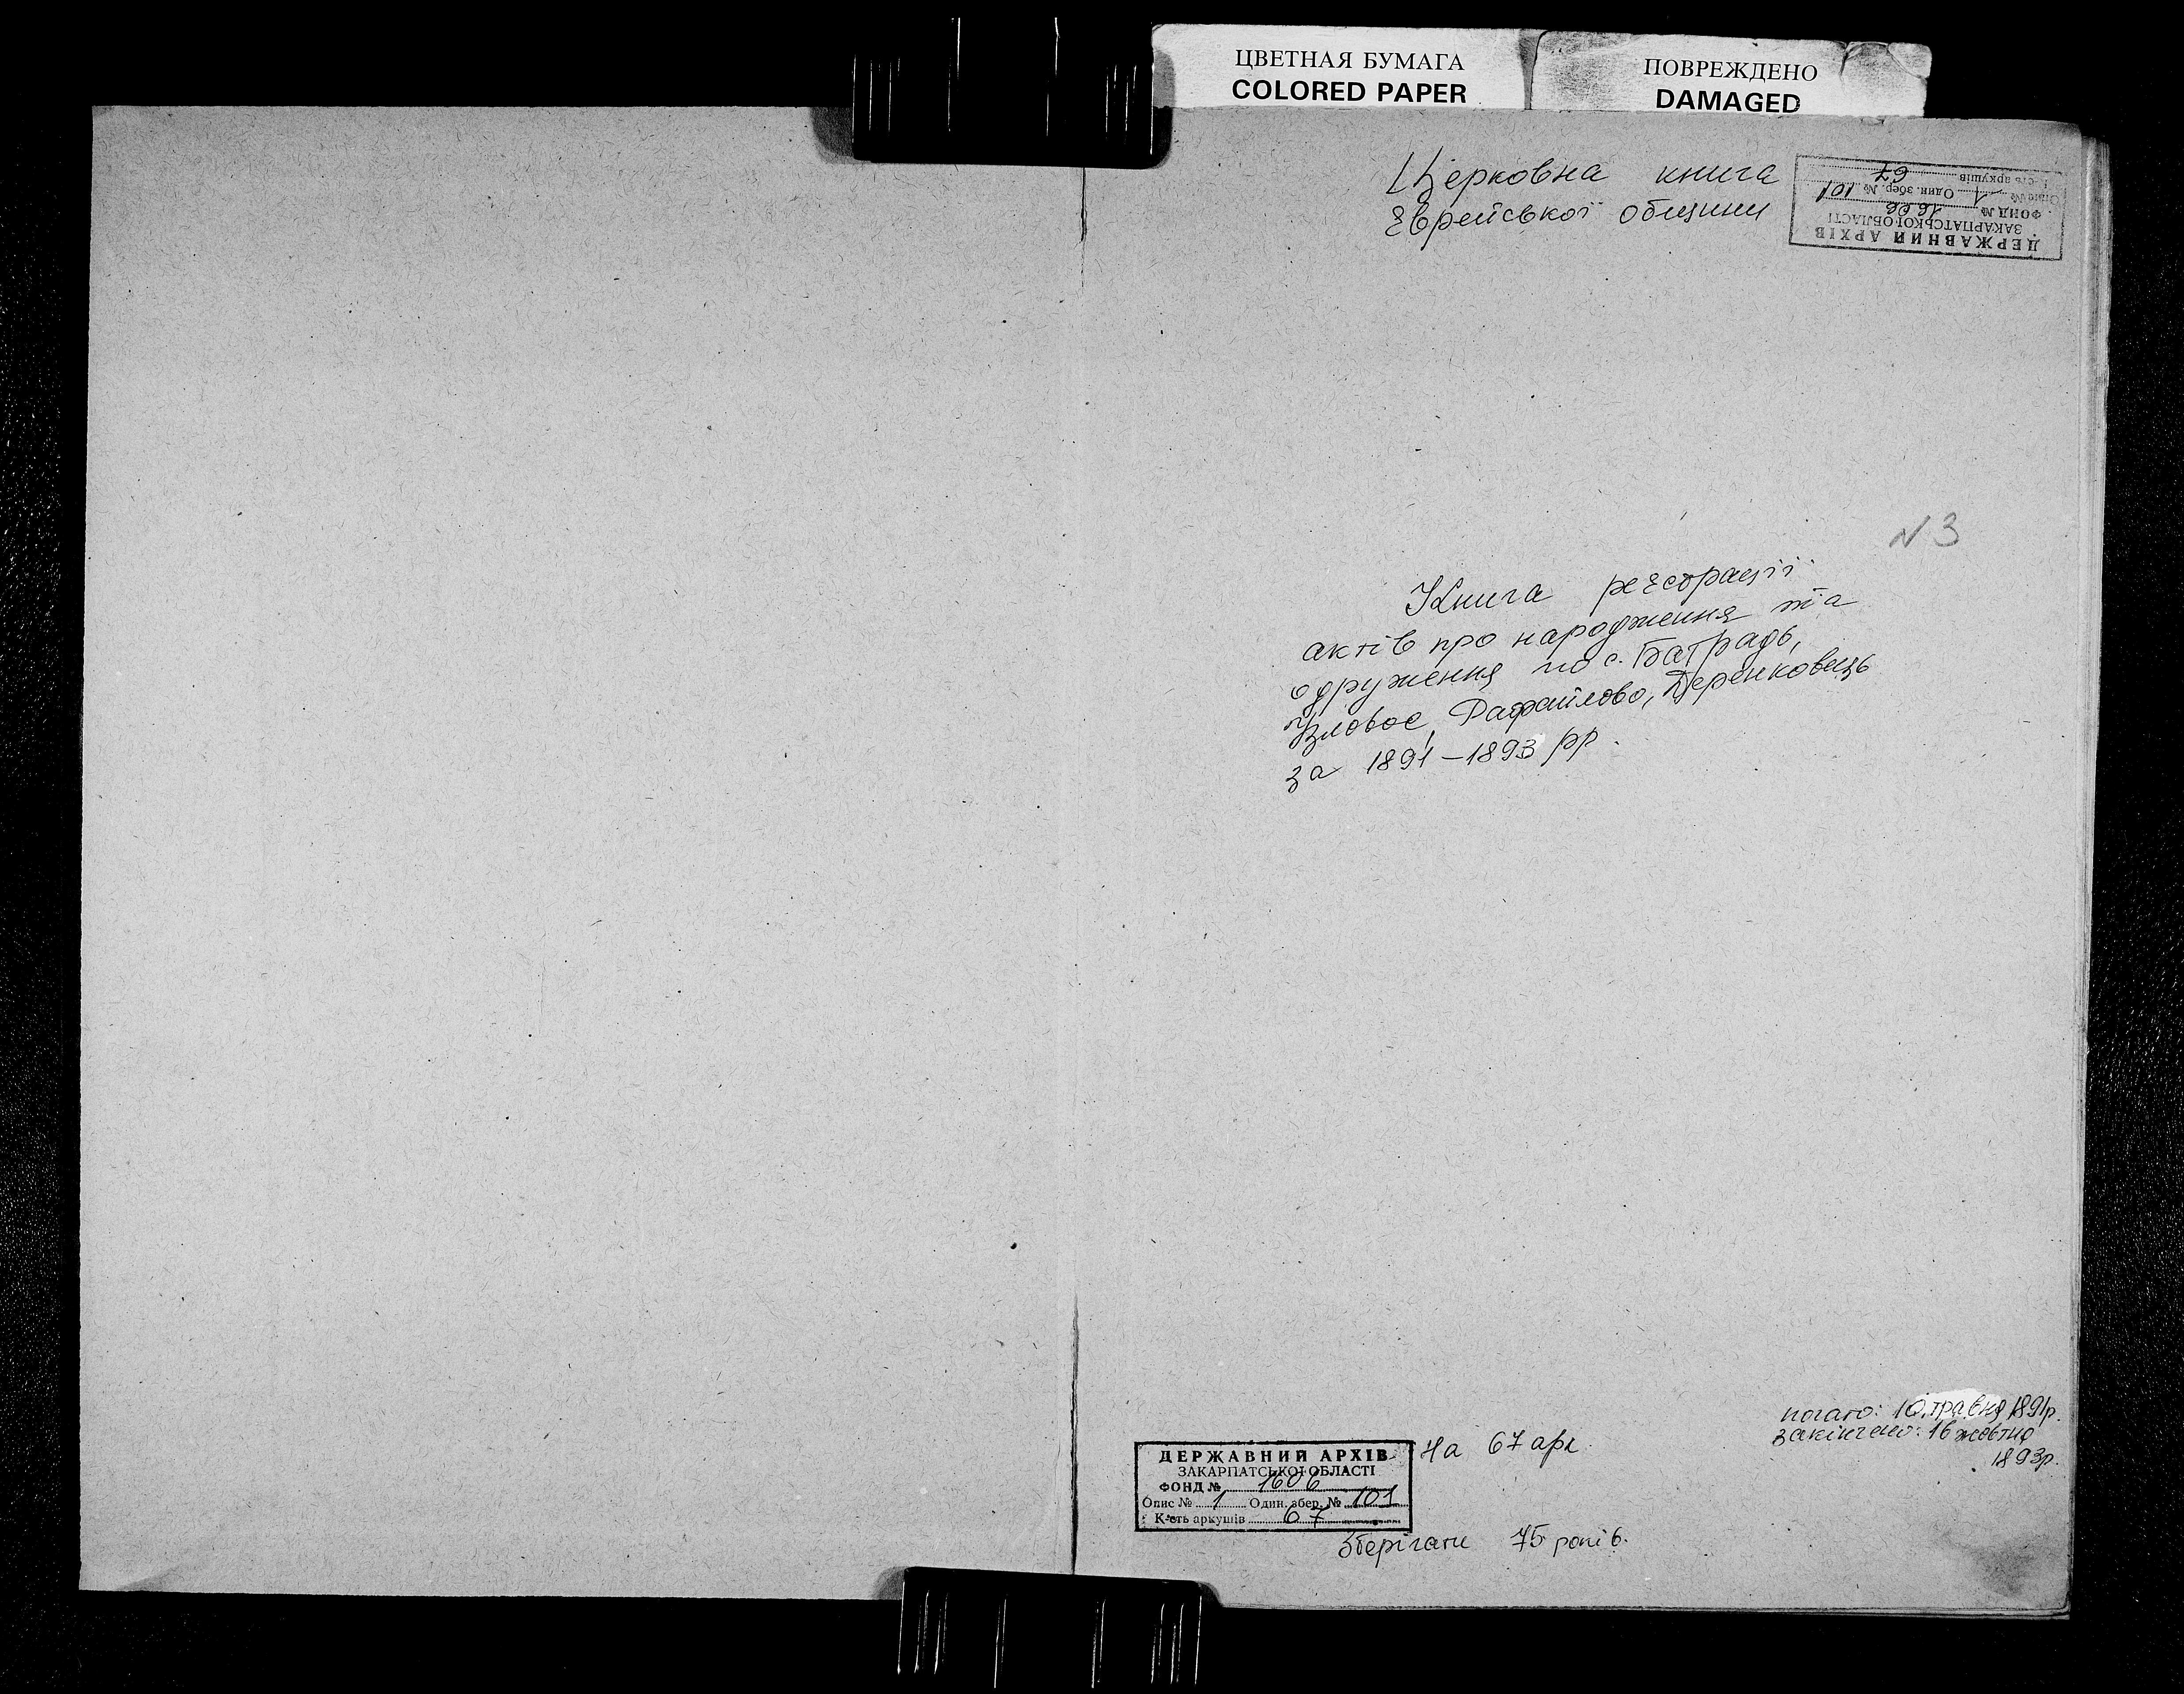 ЦВЕТНАЯ БУМАГА
COLORED PAPER
ПОВРЕЖДЕНО
DAMAGED
Церковна книга
Єврейської общини
ДЕРЖАВНИЙ АРХІВ
ЗАКАРПАТСЬКОЇ ОБЛАСТІ
ФОНД № 1606
Опис № 1 Один. збер. № 101
К-сть аркушів 67
N 3
Книга реєстрації
актів про народження та
одруження по с. Батрадь,
Вузлове, Рафайлово, Деренковець
за 1891-1893 рр.
почато: 10 травня 1891р.
закінчено: 16 жовтня
1893р.
На 67 арк.
ДЕРЖАВНИЙ АРХІВ
ЗАКАРПАТСЬКОЇ ОБЛАСТІ
ФОНД № 1606
Опис № 1 Один. збер. № 101
К-сть аркушів 67
Зберігати 75 років.